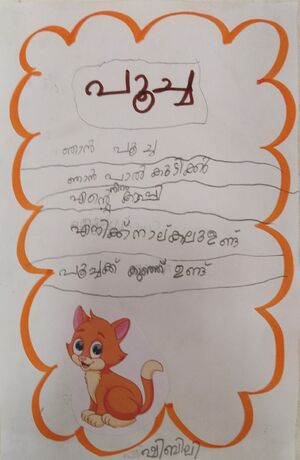 പൂച്ച
ഞാൻ പൂച്ച
ഞാൻ പാൽ കുടിക്കും
എന്റെ
എനിക്ക് നാല് കാലു ഉണ്ട്
പൂച്ചക്ക് കുഞ്ഞ് ഉണ്ട്
ഷിബിലി